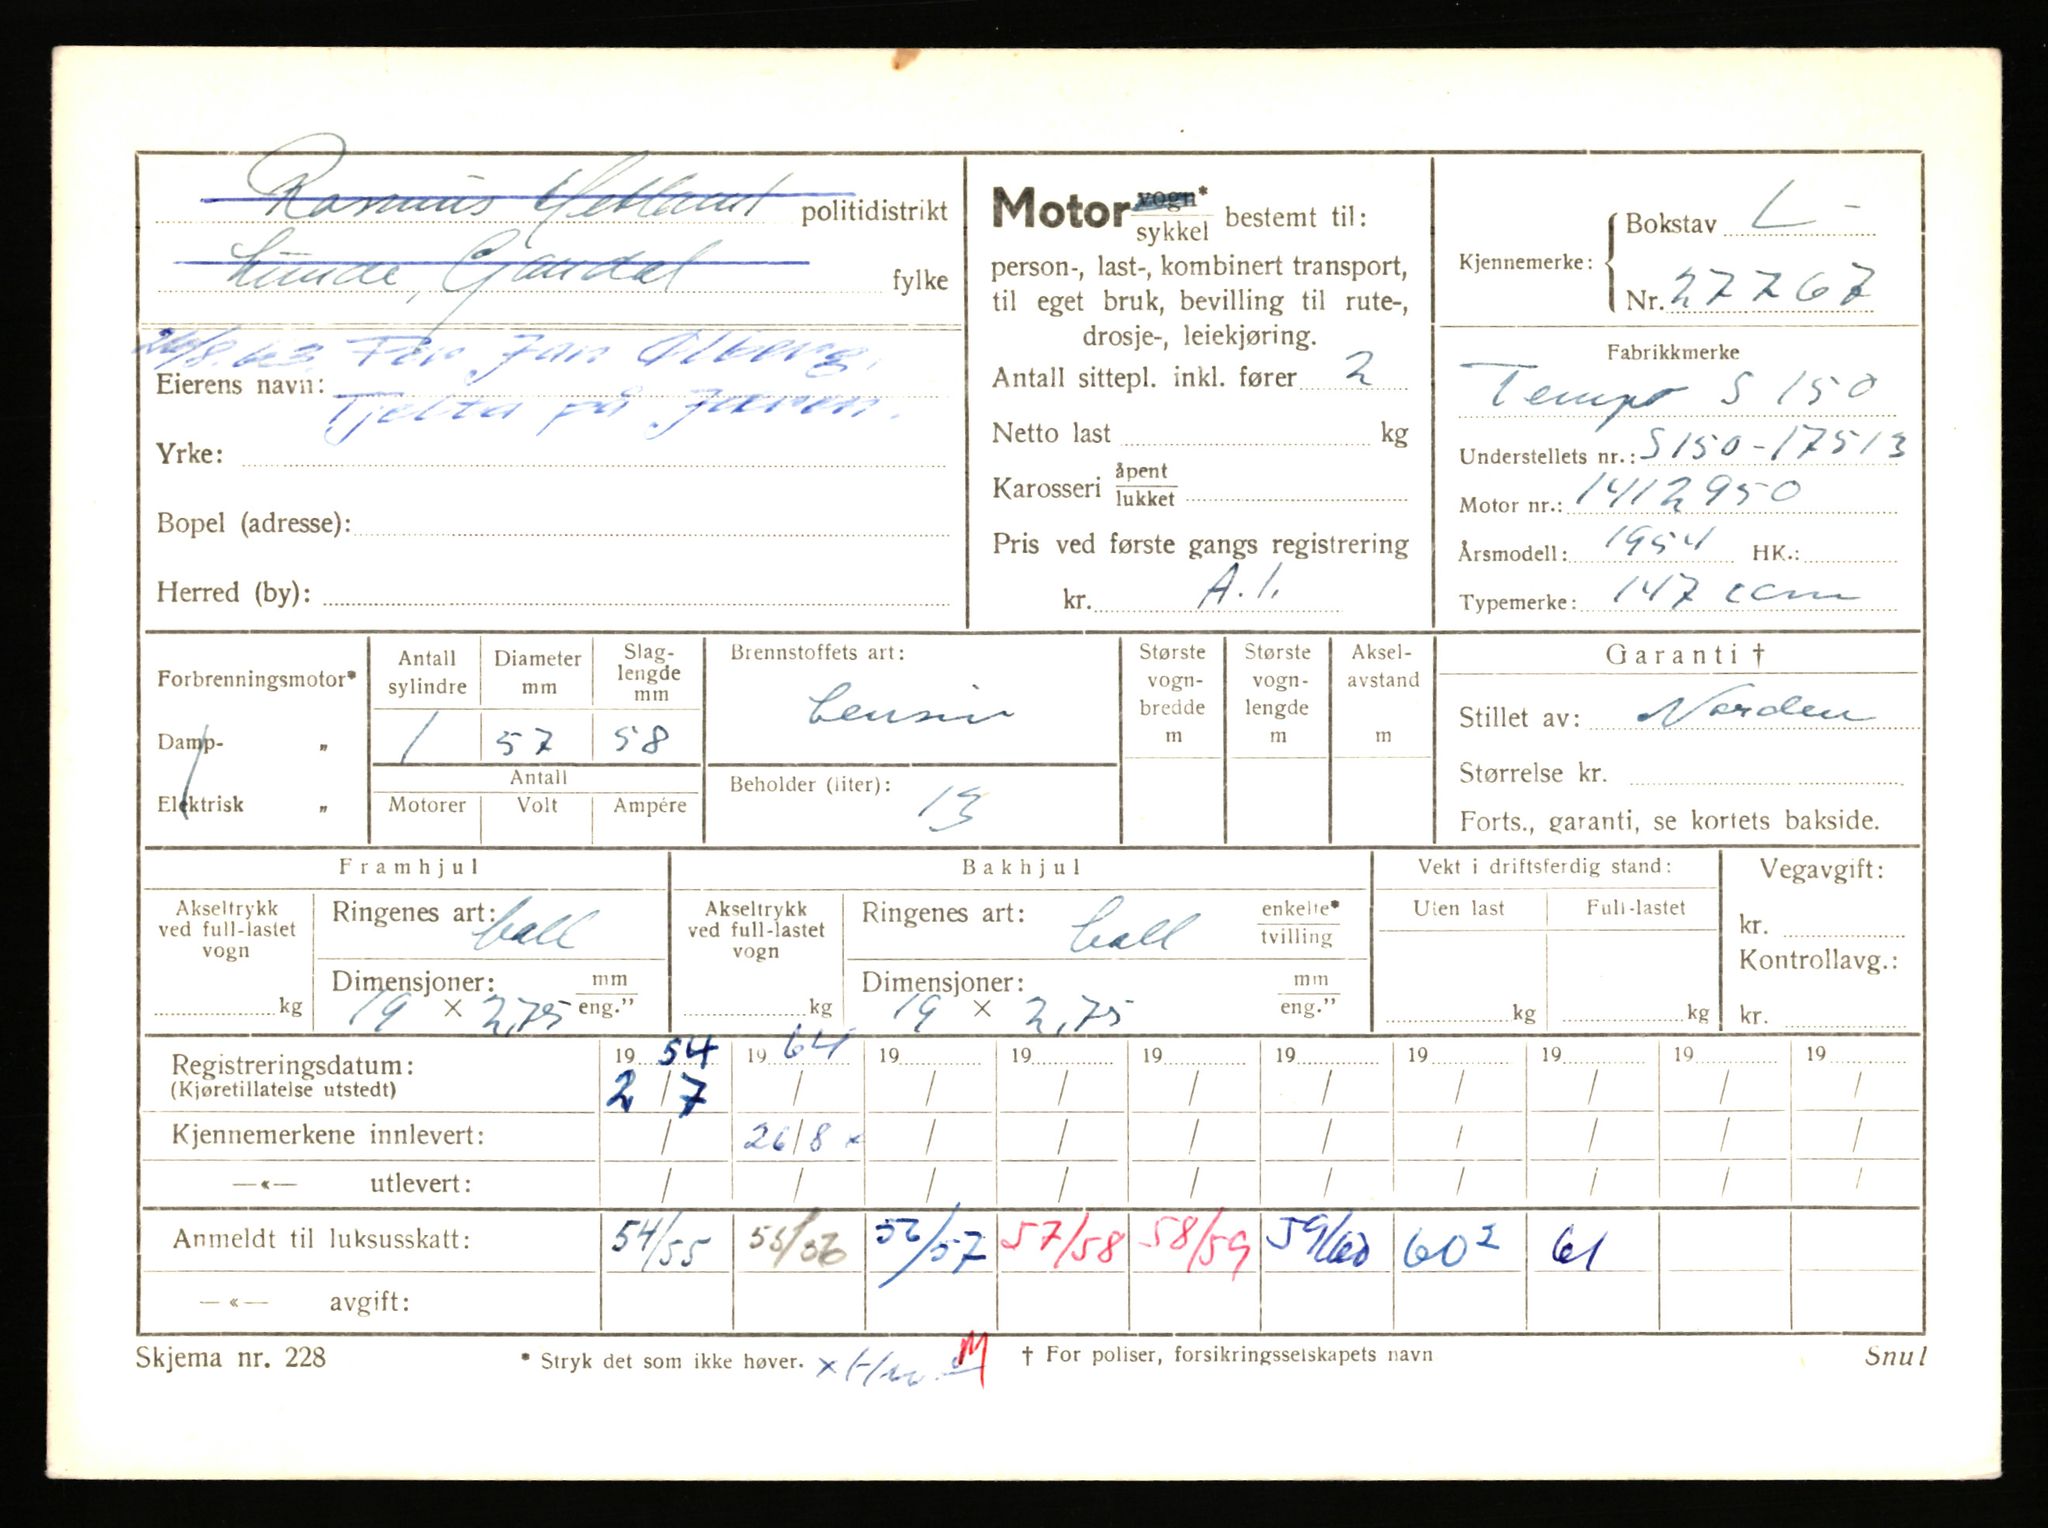 Rasmus Hetland politidistrikt
Lunde, Gandal fylke
26/8.63. Per Jan Alberg,
Eierens navn:
Tjelta på Jæren.
Yrke:
Bopel (adresse):
Herred (by):
Motor vogn* sykkel bestemt til:
person-, last-, kombinert transport,
til eget bruk, bevilling til rute-,
drosje-, leiekjøring.
Antall sittepl. inkl. fører 2
Netto last kg
Karosseri åpent lukket
Pris ved første gangs registrering
kr. A.1.
Kjennemerke: Bokstav L-
Nr. 27767
Fabrikkmerke
Tempo S 150
Understellets nr.: S150-17513
Motor nr.: 1412950
Årsmodell: 1954 HK.:
Typemerke: 147 ccm
Forbrenningsmotor*
Damp- „
Elektrisk „
Antall sylindre
1
Diameter mm
57
Slag-lengde mm
58
Antall
Motorer Volt Ampére
Brennstoffets art:
bensin
Beholder (liter):
13
Største vogn-bredde m
Største vogn-lengde m
Aksel-avstand m
Garanti †
Stillet av: Norden
Størrelse kr.
Forts., garanti, se kortets bakside.
Framhjul
Akseltrykk ved full-lastet vogn
kg
Ringenes art: ball
Dimensjoner: mm eng."
19 × 2,75
Bakhjul
Akseltrykk ved full-lastet vogn
kg
Ringenes art: ball enkelte* tvilling
Dimensjoner: mm eng."
19 × 2,75
Vekt i driftsferdig stand:
Uten last Full-lastet
kg kg
Vegavgift:
kr.
Kontrollavg.:
kr.
Registreringsdatum: 19 54 19 64 19 19 19 19 19 19 19 19
(Kjøretillatelse utstedt) 2 / 7 / / / / / / / / /
Kjennemerkene innlevert: / 26/8 × / / / / / / / /
—«— utlevert: / / / / / / / / / /
Anmeldt til luksusskatt: 54/55 55/56 56/57 57/58 58/59 59/60 60² 61
—«— avgift:
Skjema nr. 228 * Stryk det som ikke høver. × M † For poliser, forsikringsselskapets navn Snul